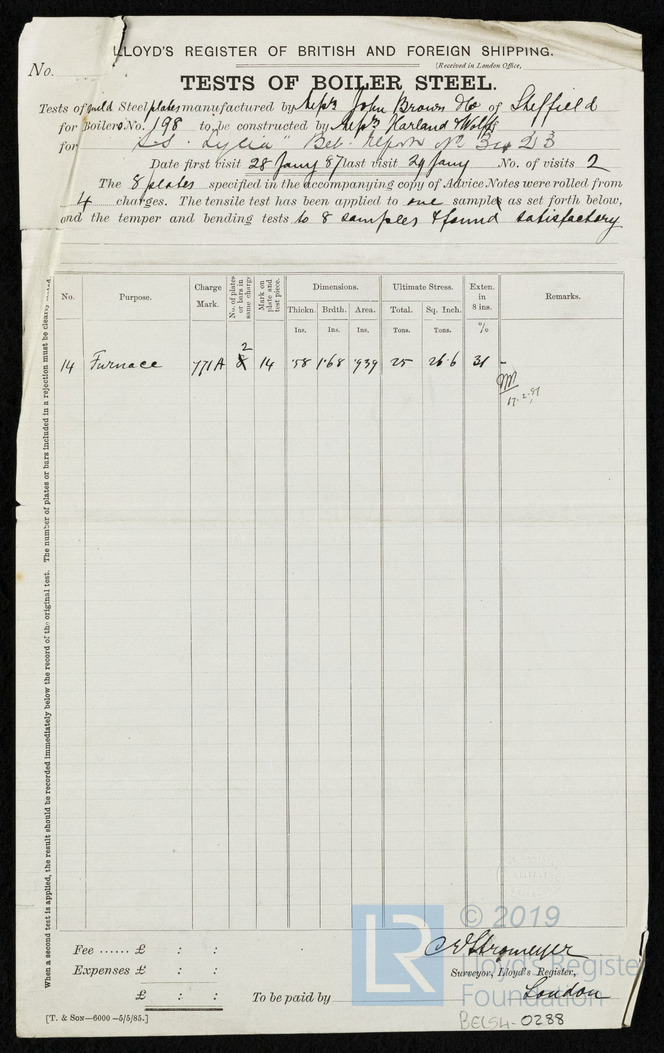 LLOYD'S REGISTER OF BRITISH AND FOREIGN SHIPPING.
No.
(Received in London Office,
TESTS OF BOILER STEEL.
Tests of mild Steel plates manufactured by Messrs John Brown & Co of Sheffield
for Boilers. No. 198 to be constructed by Messrs Harland & Wolff
for S.S. "Lycia" Bel. Report No
Date first visit 28 Jany 87 last visit 29 Jany No. of visits 2
The 8 plates specified in the accompanying copy of Advice Notes were rolled from
4 charges. The tensile test has been applied to one sample as set forth below,
and the temper and bending tests to 8 samples & found satisfactory
No. Purpose. Charge Mark. No. of plates or bars in same charge Mark on plate and test piece. Dimensions. Ultimate Stress. Exten. in 8 ins. Remarks.
Thickn. Brdth. Area. Total. Sq. Inch.
Ins. Ins. Ins. Tons. Tons. %
2
14 Furnace 771A 8 14 .58 1.68 .939 25 26.6 31 -
17.2.87
When a second test is applied, the result should be recorded immediately below the record of the original test. The number of plates or bars included in a rejection must be clearly stated.
Fee ...... £ : :
Expenses £ : :
£ : :
To be paid by
C E Stromeyer
Surveyor, Lloyd's Register,
London
[T. & SON—6000—5/5/85.]
LR
© 2019
Lloyd's Register
Foundation
BEL54-0288